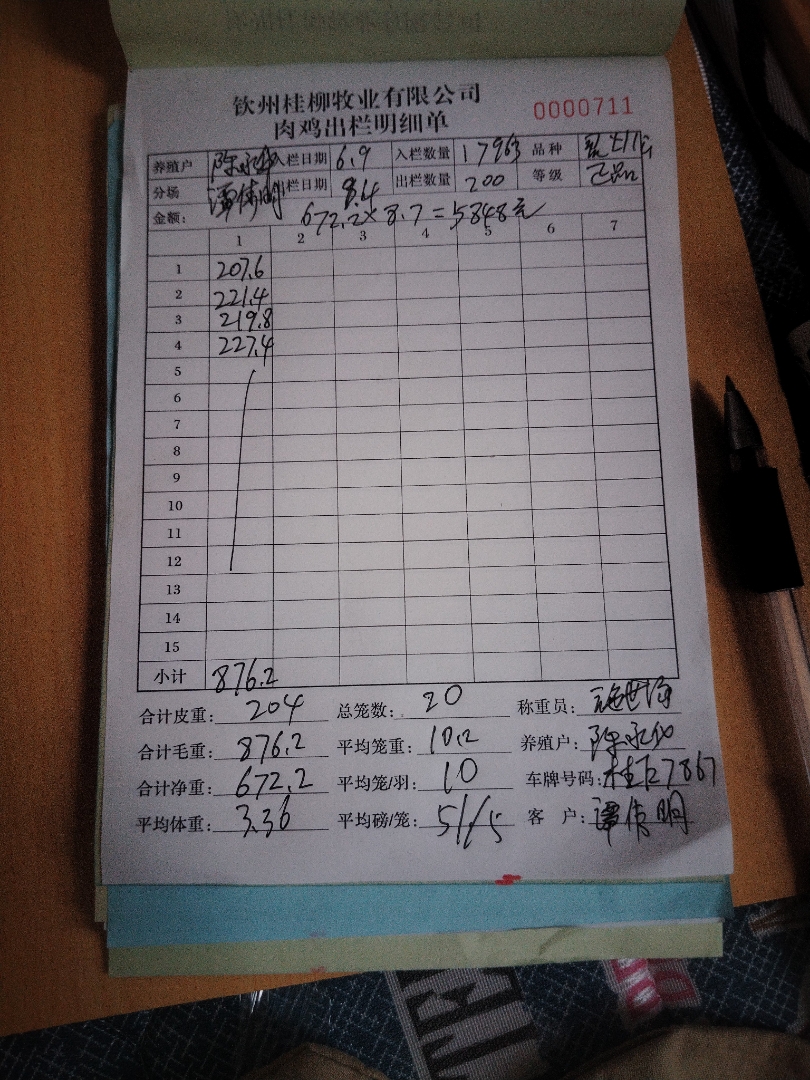 钦州桂柳牧业有限公司
0000711
肉鸡出栏明细单
养殖户 入栏日期 6.9 入栏数量 17963 品种
分场 谭伟明 出栏日期 8.4 出栏数量 200 等级 正品
金额: 672.2×8.7=5848元
1 2 3 4 5 6 7
1 207.6
2 221.4
3 219.8
4 227.4
5
6
7
8
9
10
11
12
13
14
15
小计 876.2
合计皮重: 204 总笼数: 20 称重员:
合计毛重: 876.2 平均笼重: 10.2 养殖户:
合计净重: 672.2 平均笼/羽: 10 车牌号码: 7867
平均体重: 3.36 平均磅/笼: 5/5 客 户: 谭伟明